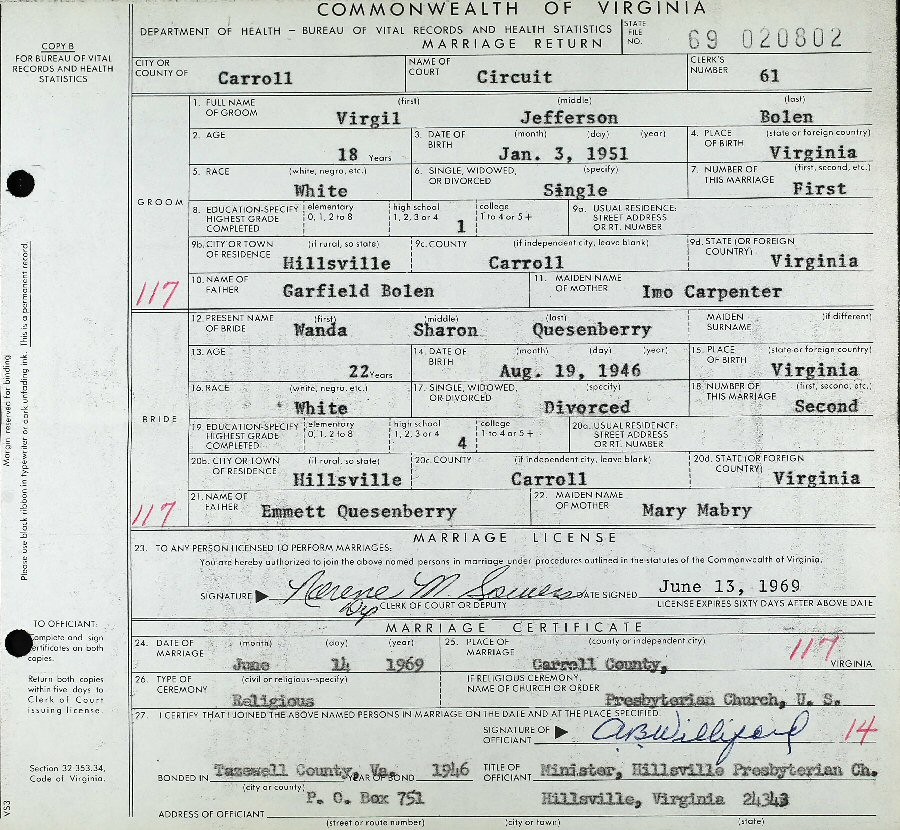 COMMONWEALTH OF VIRGINIA
DEPARTMENT OF HEALTH – BUREAU OF VITAL RECORDS AND HEALTH STATISTICS
MARRIAGE RETURN
STATE FILE NO. 69 020802
COPY B
FOR BUREAU OF VITAL
RECORDS AND HEALTH
STATISTICS
CITY OR COUNTY OF Carroll NAME OF COURT Circuit CLERK'S NUMBER 61
GROOM
1. FULL NAME OF GROOM (first) Virgil (middle) Jefferson (last) Bolen
2. AGE 18 Years 3. DATE OF BIRTH (month) (day) (year) Jan. 3, 1951 4. PLACE OF BIRTH (state or foreign country) Virginia
5. RACE (white, negro, etc.) White 6. SINGLE, WIDOWED, OR DIVORCED (specify) Single 7. NUMBER OF THIS MARRIAGE (first, second, etc.) First
8. EDUCATION-SPECIFY HIGHEST GRADE COMPLETED elementary 0, 1, 2 to 8 high school 1, 2, 3 or 4 1 college 1 to 4 or 5+ 9a. USUAL RESIDENCE: STREET ADDRESS OR RT. NUMBER
9b. CITY OR TOWN OF RESIDENCE (if rural, so state) Hillsville 9c. COUNTY (if independent city, leave blank) Carroll 9d. STATE (OR FOREIGN COUNTRY) Virginia
117
10. NAME OF FATHER Garfield Bolen 11. MAIDEN NAME OF MOTHER Imo Carpenter
BRIDE
12. PRESENT NAME OF BRIDE (first) Wanda (middle) Sharon (last) Quesenberry MAIDEN SURNAME (if different)
13. AGE 22 Years 14. DATE OF BIRTH (month) (day) (year) Aug. 19, 1946 15. PLACE OF BIRTH (state or foreign country) Virginia
16. RACE (white, negro, etc.) White 17. SINGLE, WIDOWED, OR DIVORCED (specify) Divorced 18. NUMBER OF THIS MARRIAGE (first, second, etc.) Second
19. EDUCATION-SPECIFY HIGHEST GRADE COMPLETED elementary 0, 1, 2 to 8 high school 1, 2, 3 or 4 4 college 1 to 4 or 5+ 20a. USUAL RESIDENCE: STREET ADDRESS OR RT. NUMBER
20b. CITY OR TOWN OF RESIDENCE (if rural, so state) Hillsville 20c. COUNTY (if independent city, leave blank) Carroll 20d. STATE (OR FOREIGN COUNTRY) Virginia
117
21. NAME OF FATHER Emmett Quesenberry 22. MAIDEN NAME OF MOTHER Mary Mabry
MARRIAGE LICENSE
23. TO ANY PERSON LICENSED TO PERFORM MARRIAGES:
You are hereby authorized to join the above named persons in marriage under procedures outlined in the statutes of the Commonwealth of Virginia.
SIGNATURE ▶ Norene M. Sowers DATE SIGNED June 13, 1969
Dep CLERK OF COURT OR DEPUTY LICENSE EXPIRES SIXTY DAYS AFTER ABOVE DATE
MARRIAGE CERTIFICATE
24. DATE OF MARRIAGE (month) June (day) 14 (year) 1969 25. PLACE OF MARRIAGE (county or independent city) Carroll County, 117 VIRGINIA
26. TYPE OF CEREMONY (civil or religious–specify) Religious IF RELIGIOUS CEREMONY, NAME OF CHURCH OR ORDER Presbyterian Church, U. S.
27. I CERTIFY THAT I JOINED THE ABOVE NAMED PERSONS IN MARRIAGE ON THE DATE AND AT THE PLACE SPECIFIED.
SIGNATURE OF OFFICIAL ▶ A B Williford 14
BONDED IN Tazewell County, Va. (city or county) YEAR OF BOND 1946 TITLE OF OFFICIAL Minister, Hillsville Presbyterian Ch.
ADDRESS OF OFFICIAL P. O. Box 751 Hillsville, Virginia 24343
(street or route number) (city or town) (state)
Margin reserved for binding
Please use black ribbon in typewriter or dark unfading ink. This is a permanent record.
TO OFFICIAL:
Complete and sign
certificates on both
copies.
Return both copies
within five days to
Clerk of Court
issuing license.
Section 32-353.34,
Code of Virginia.
VS3